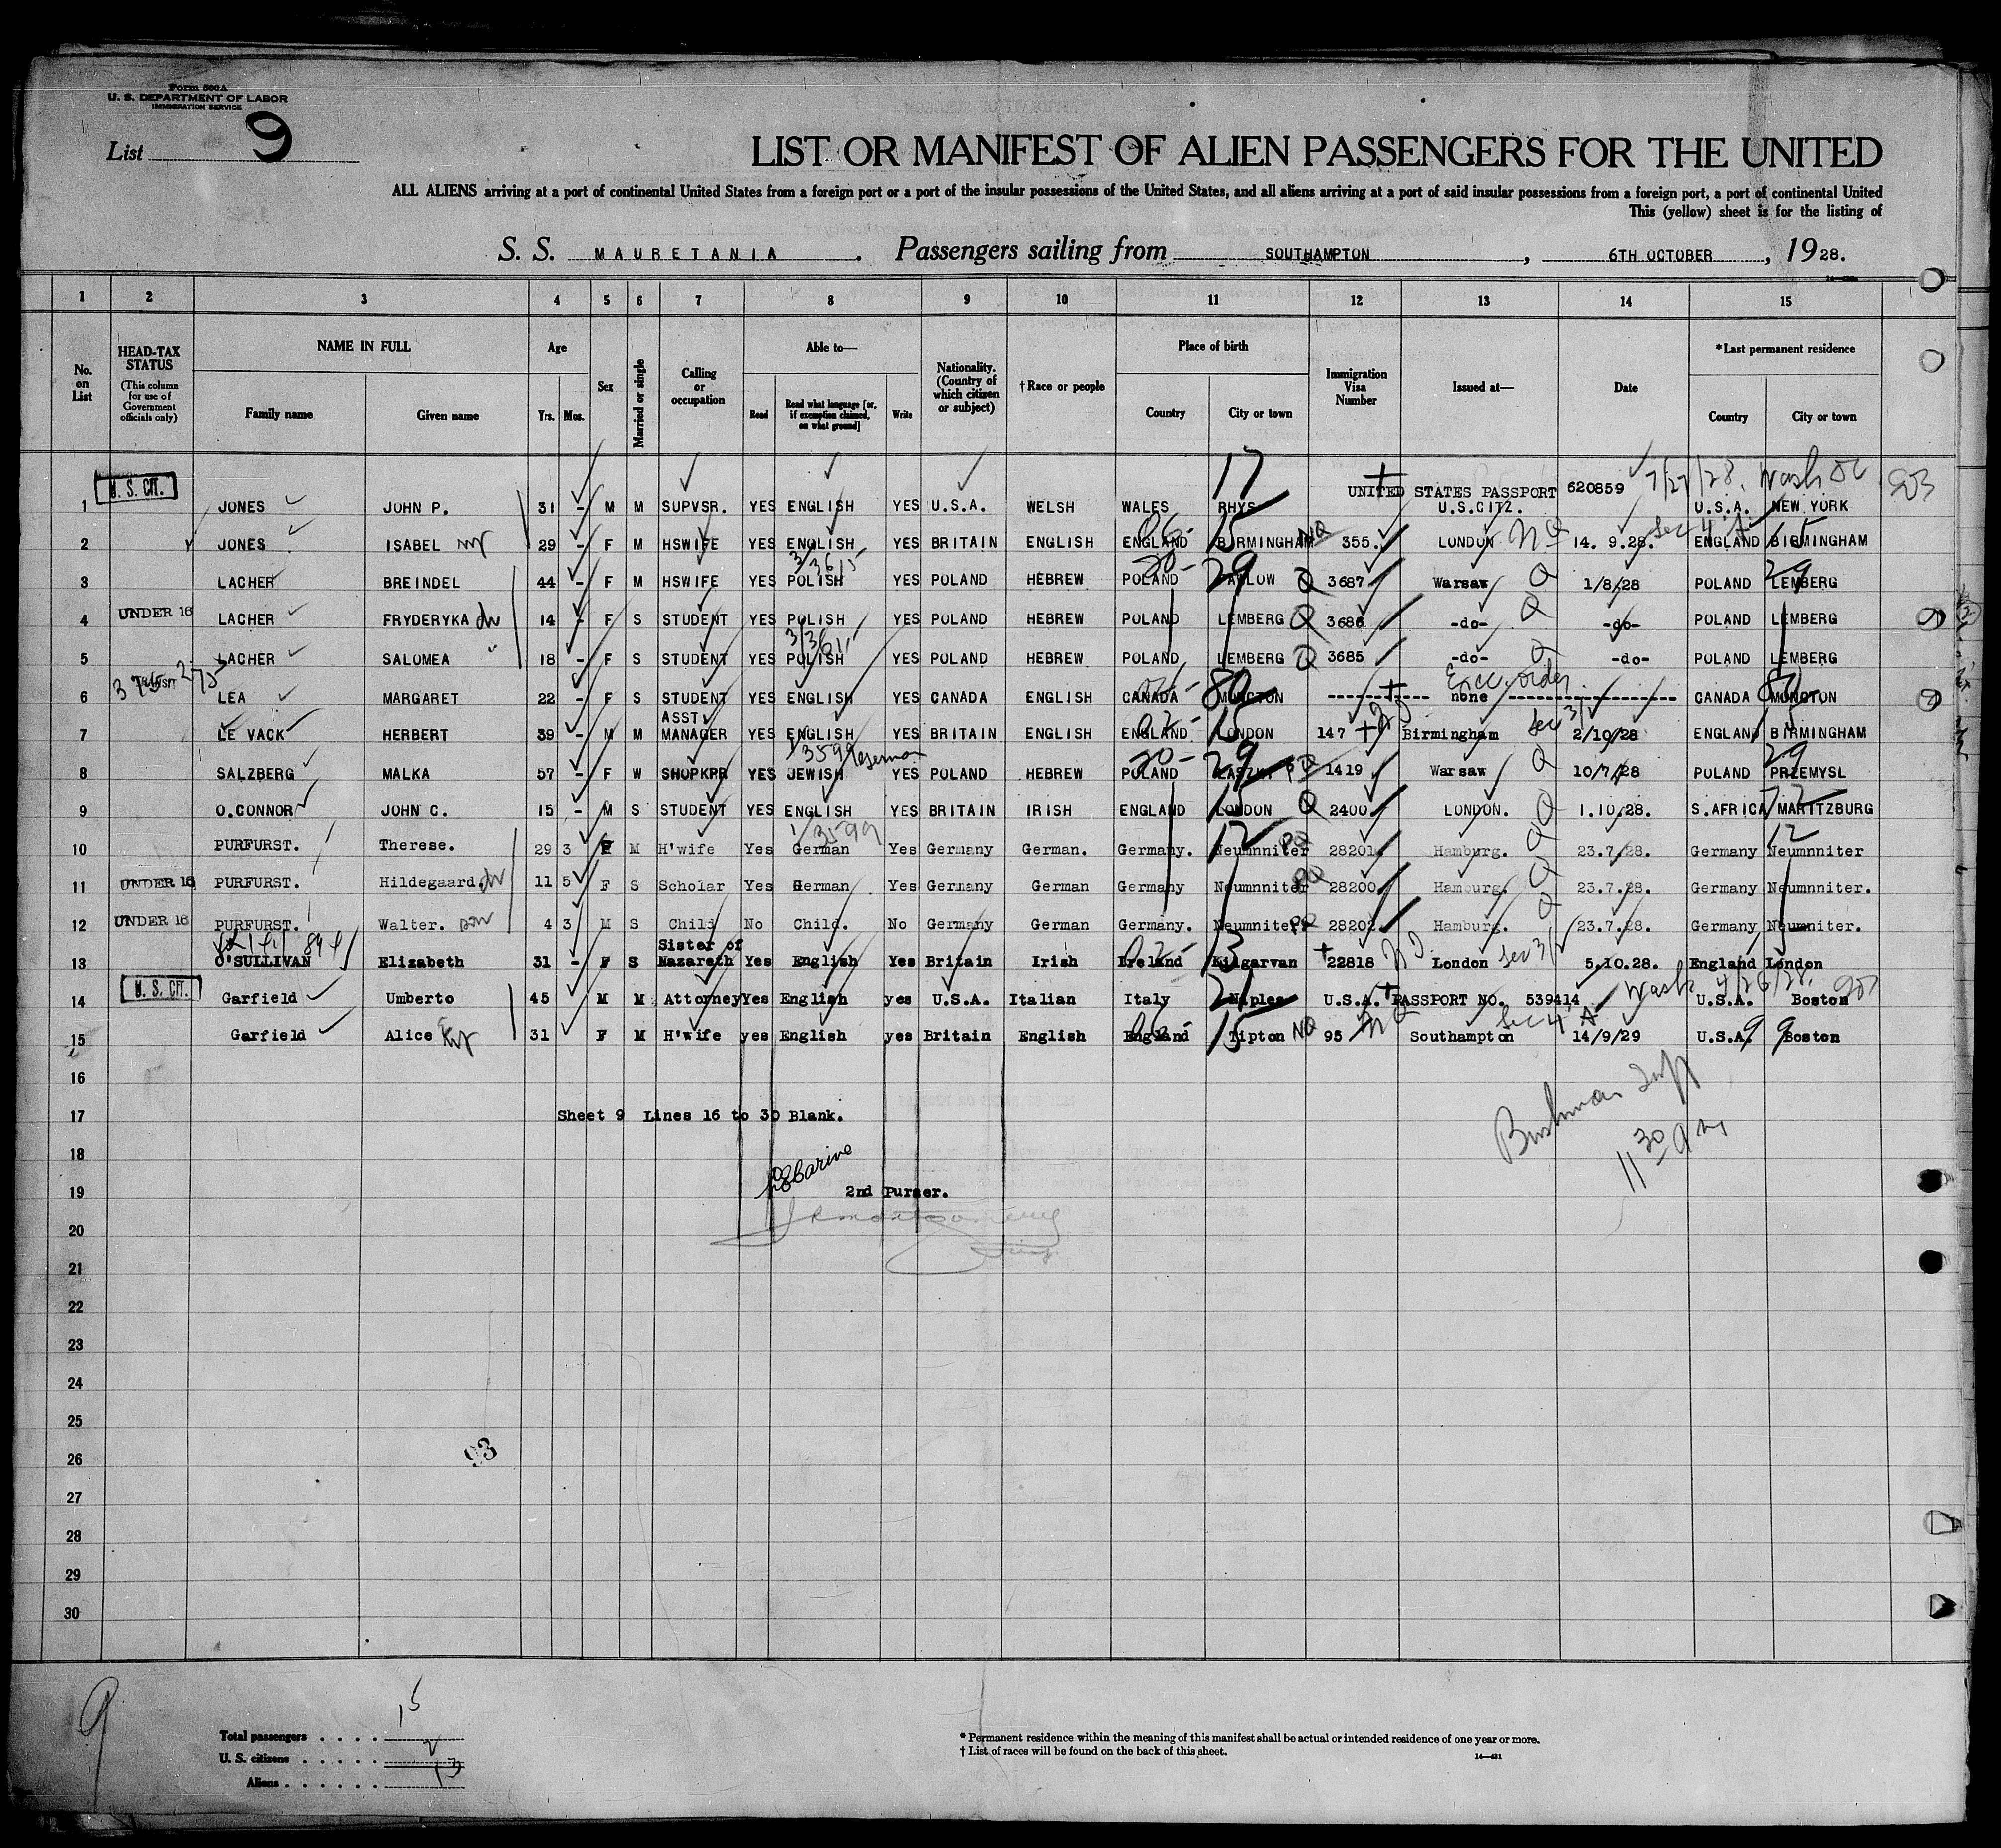 Form 500A
U. S. DEPARTMENT OF LABOR
IMMIGRATION SERVICE
List 9
LIST OR MANIFEST OF ALIEN PASSENGERS FOR THE UNITED
ALL ALIENS arriving at a port of continental United States from a foreign port or a port of the insular possessions of the United States, and all aliens arriving at a port of said insular possessions from a foreign port, a port of continental United
This (yellow) sheet is for the listing of
S. S. MAURETANIA. Passengers sailing from SOUTHAMPTON, 6TH OCTOBER, 1928.
1 2 3 4 5 6 7 8 9 10 11 12 13 14 15
No. on List
HEAD-TAX STATUS (This column for use of Government officials only)
NAME IN FULL
Family name Given name
Age
Yrs. Mos.
Sex
Married or single
Calling or occupation
Able to—
Read Read what language [or, if exemption claimed, on what ground] Write
Nationality. (Country of which citizen or subject)
†Race or people
Place of birth
Country City or town
Immigration Visa Number
Issued at—
Date
*Last permanent residence
Country City or town
17 7/27/28. Wash DC
1 U. S. CIT. JONES JOHN P. 31 - M M SUPVSR. YES ENGLISH YES U.S.A. WELSH WALES RHYS UNITED STATES PASSPORT 620859 U.S.CITZ. U.S.A. NEW YORK
2 JONES ISABEL 29 - F M HSWIFE YES ENGLISH YES BRITAIN ENGLISH ENGLAND 15 BIRMINGHAM NQ 355. LONDON NQ 14. 9.28. Sec 4 A ENGLAND 15 BIRMINGHAM
3 LACHER BREINDEL 44 - F M HSWIFE YES POLISH YES POLAND HEBREW POLAND 29 Q 3687 Warsaw Q 1/8/28 POLAND 29 LEMBERG
4 UNDER 16 LACHER FRYDERYKA 14 - F S STUDENT YES POLISH YES POLAND HEBREW POLAND LEMBERG Q 3686 -do- Q -do- POLAND LEMBERG
5 LACHER SALOMEA 18 - F S STUDENT YES POLISH YES POLAND HEBREW POLAND LEMBERG Q 3685 -do- Q -do- POLAND LEMBERG
6 LEA MARGARET 22 - F S STUDENT YES ENGLISH YES CANADA ENGLISH CANADA 80 MONCTON none Exec. order CANADA MONCTON
7 LE VACK HERBERT 39 - M M ASST. MANAGER YES ENGLISH YES BRITAIN ENGLISH ENGLAND 15 LONDON 147 Birmingham Sec 3/ 2/10/28 ENGLAND 15 BIRMINGHAM
8 SALZBERG MALKA 57 - F W SHOPKPR YES JEWISH German YES POLAND HEBREW POLAND 29 1419 Warsaw Q 10/7/28 POLAND 29 PRZEMYSL
9 O.CONNOR JOHN C. 15 - M S STUDENT YES ENGLISH YES BRITAIN IRISH ENGLAND 15 LONDON Q 2400 LONDON. Q 1.10.28. S.AFRICA 72 MARITZBURG
10 PURFURST. Therese. 29 3 F M H'wife Yes German Yes Germany German. Germany. 12 Neumnniter 28201 Hamburg. Q 23.7.28. Germany 12 Neumnniter
11 UNDER 16 PURFURST. Hildegaard. 11 5 F S Scholar Yes German Yes Germany German Germany Neumnniter 28200 Hamburg. Q 23.7.28. Germany Neumnniter.
12 UNDER 16 PURFURST. Walter. son 4 3 M S Child No Child. No Germany German Germany. Neumniter 28202 Hamburg. Q 23.7.28. Germany Neumniter.
13 O'SULLIVAN Elizabeth 31 - F S Sister of Nazareth Yes English Yes Britain Irish Ireland 13 Kilgarvan 22818 London Sec 3/ 5.10.28. England London
14 U. S. CIT. Garfield Umberto 45 M M Attorney Yes English yes U.S.A. Italian Italy 21 Naples U.S.A. PASSPORT NO. 539414 Wash U.S.A. Boston
15 Garfield Alice 31 F M H'wife yes English yes Britain English England 15 Tipton NQ 95 NQ Southampton Sec 4 A 14/9/29 U.S.A. 9 9 Boston
16
17 Sheet 9 Lines 16 to 30 Blank.
11 30 am
18
19 2nd Purser.
20
21
22
23
24
25
26 93
27
28
29
30
9
Total passengers . . . . 15
U. S. citizens . . . . . 2
Aliens . . . . . . 13
* Permanent residence within the meaning of this manifest shall be actual or intended residence of one year or more.
† List of races will be found on the back of this sheet.
14—431